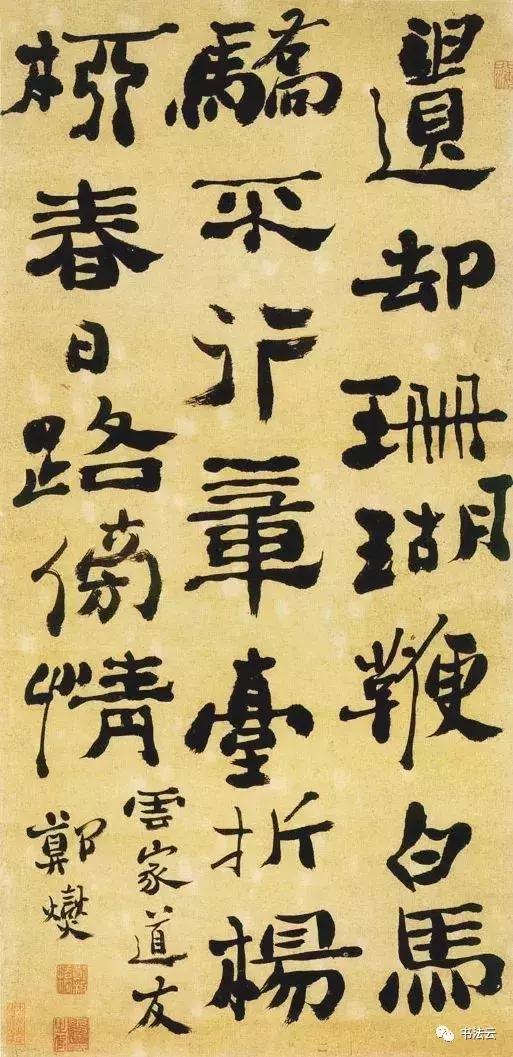 遺却珊瑚鞭白馬
驕不行章臺折楊
桺春日路傍情
雲家道友
鄭燮
书法云